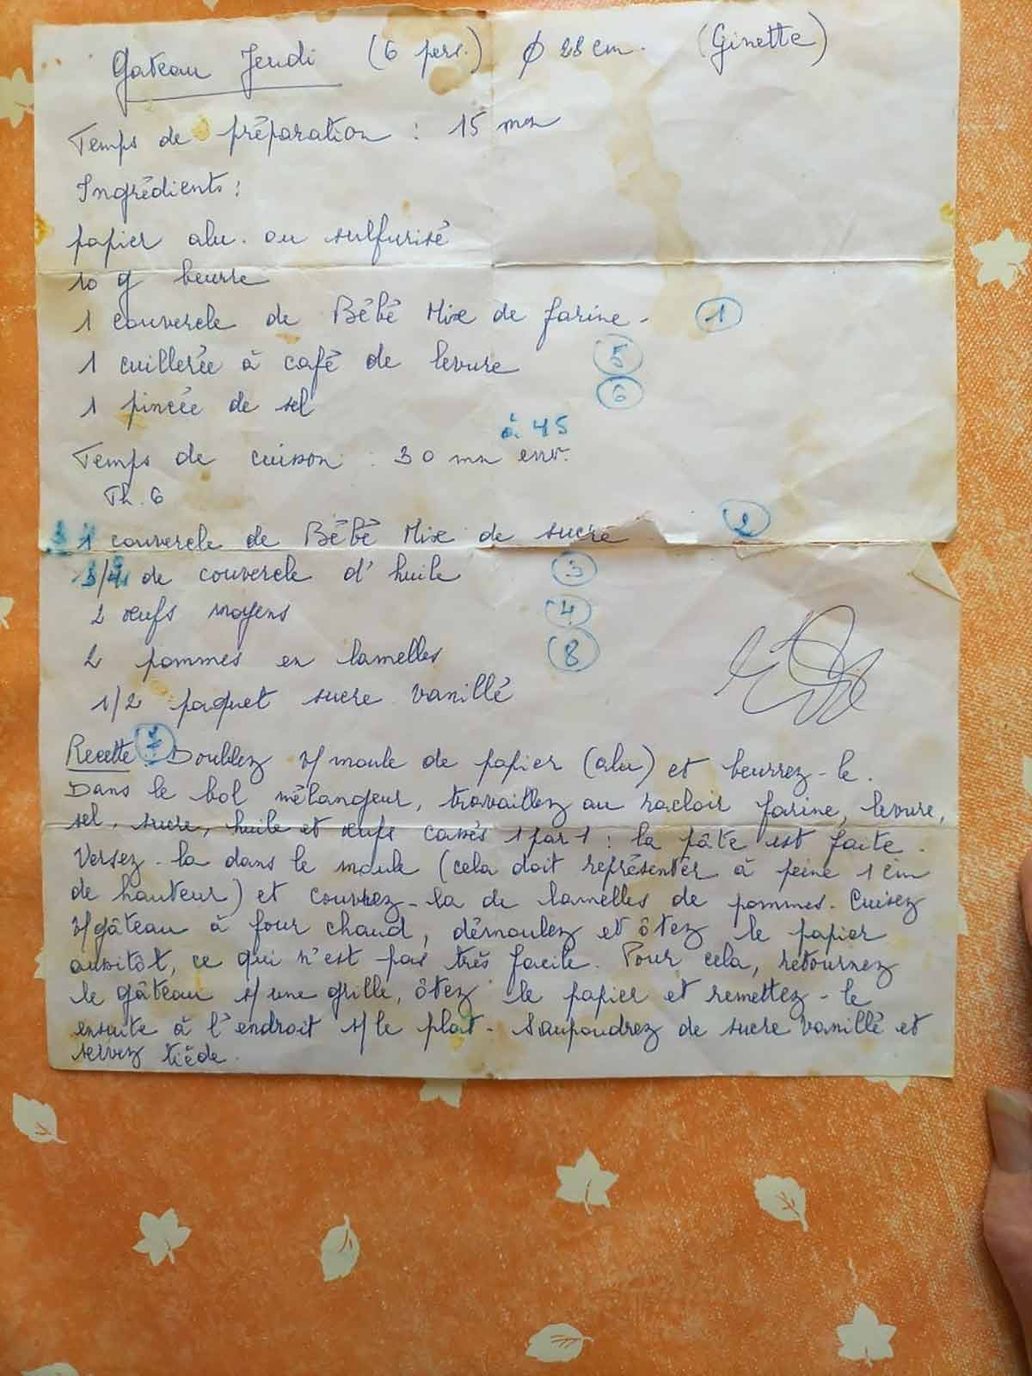 Gateau Jeudi (6 pers.) ϕ 28 cm. (Ginette)
Temps de préparation : 15 mn
Ingrédients :
papier alu. ou sulfurisé
10 g beurre
1 couvercle de Bébé Mixe de farine - 1
1 cuillerée à café de levure 5
1 pincée de sel 6
à 45
Temps de cuisson : 30 mn env.
Th. 6
1 couvercle de Bébé Mixe de sucre 2
de couvercle d'huile 3
2 œufs moyens 4
2 pommes en lamelles 8
1/2 paquet sucre vanillé
Recette 7 Doublez v/ moule de papier (alu) et beurrez-le.
Dans le bol mélangeur, travaillez au racloir farine, levure,
sel, sucre, huile et œufs cassés 1 par 1 : la pâte est faite.
Versez-la dans le moule (cela doit représenter à peine 1 cm
de hauteur) et couvrez-la de lamelles de pommes. Cuisez
v/gâteau à four chaud, démoulez et ôtez le papier
aussitôt, ce qui n'est pas très facile. Pour cela, retournez
le gâteau s/ une grille, ôtez le papier et remettez-le
ensuite à l'endroit s/ le plat. Saupoudrez de sucre vanillé et
servez tiède.